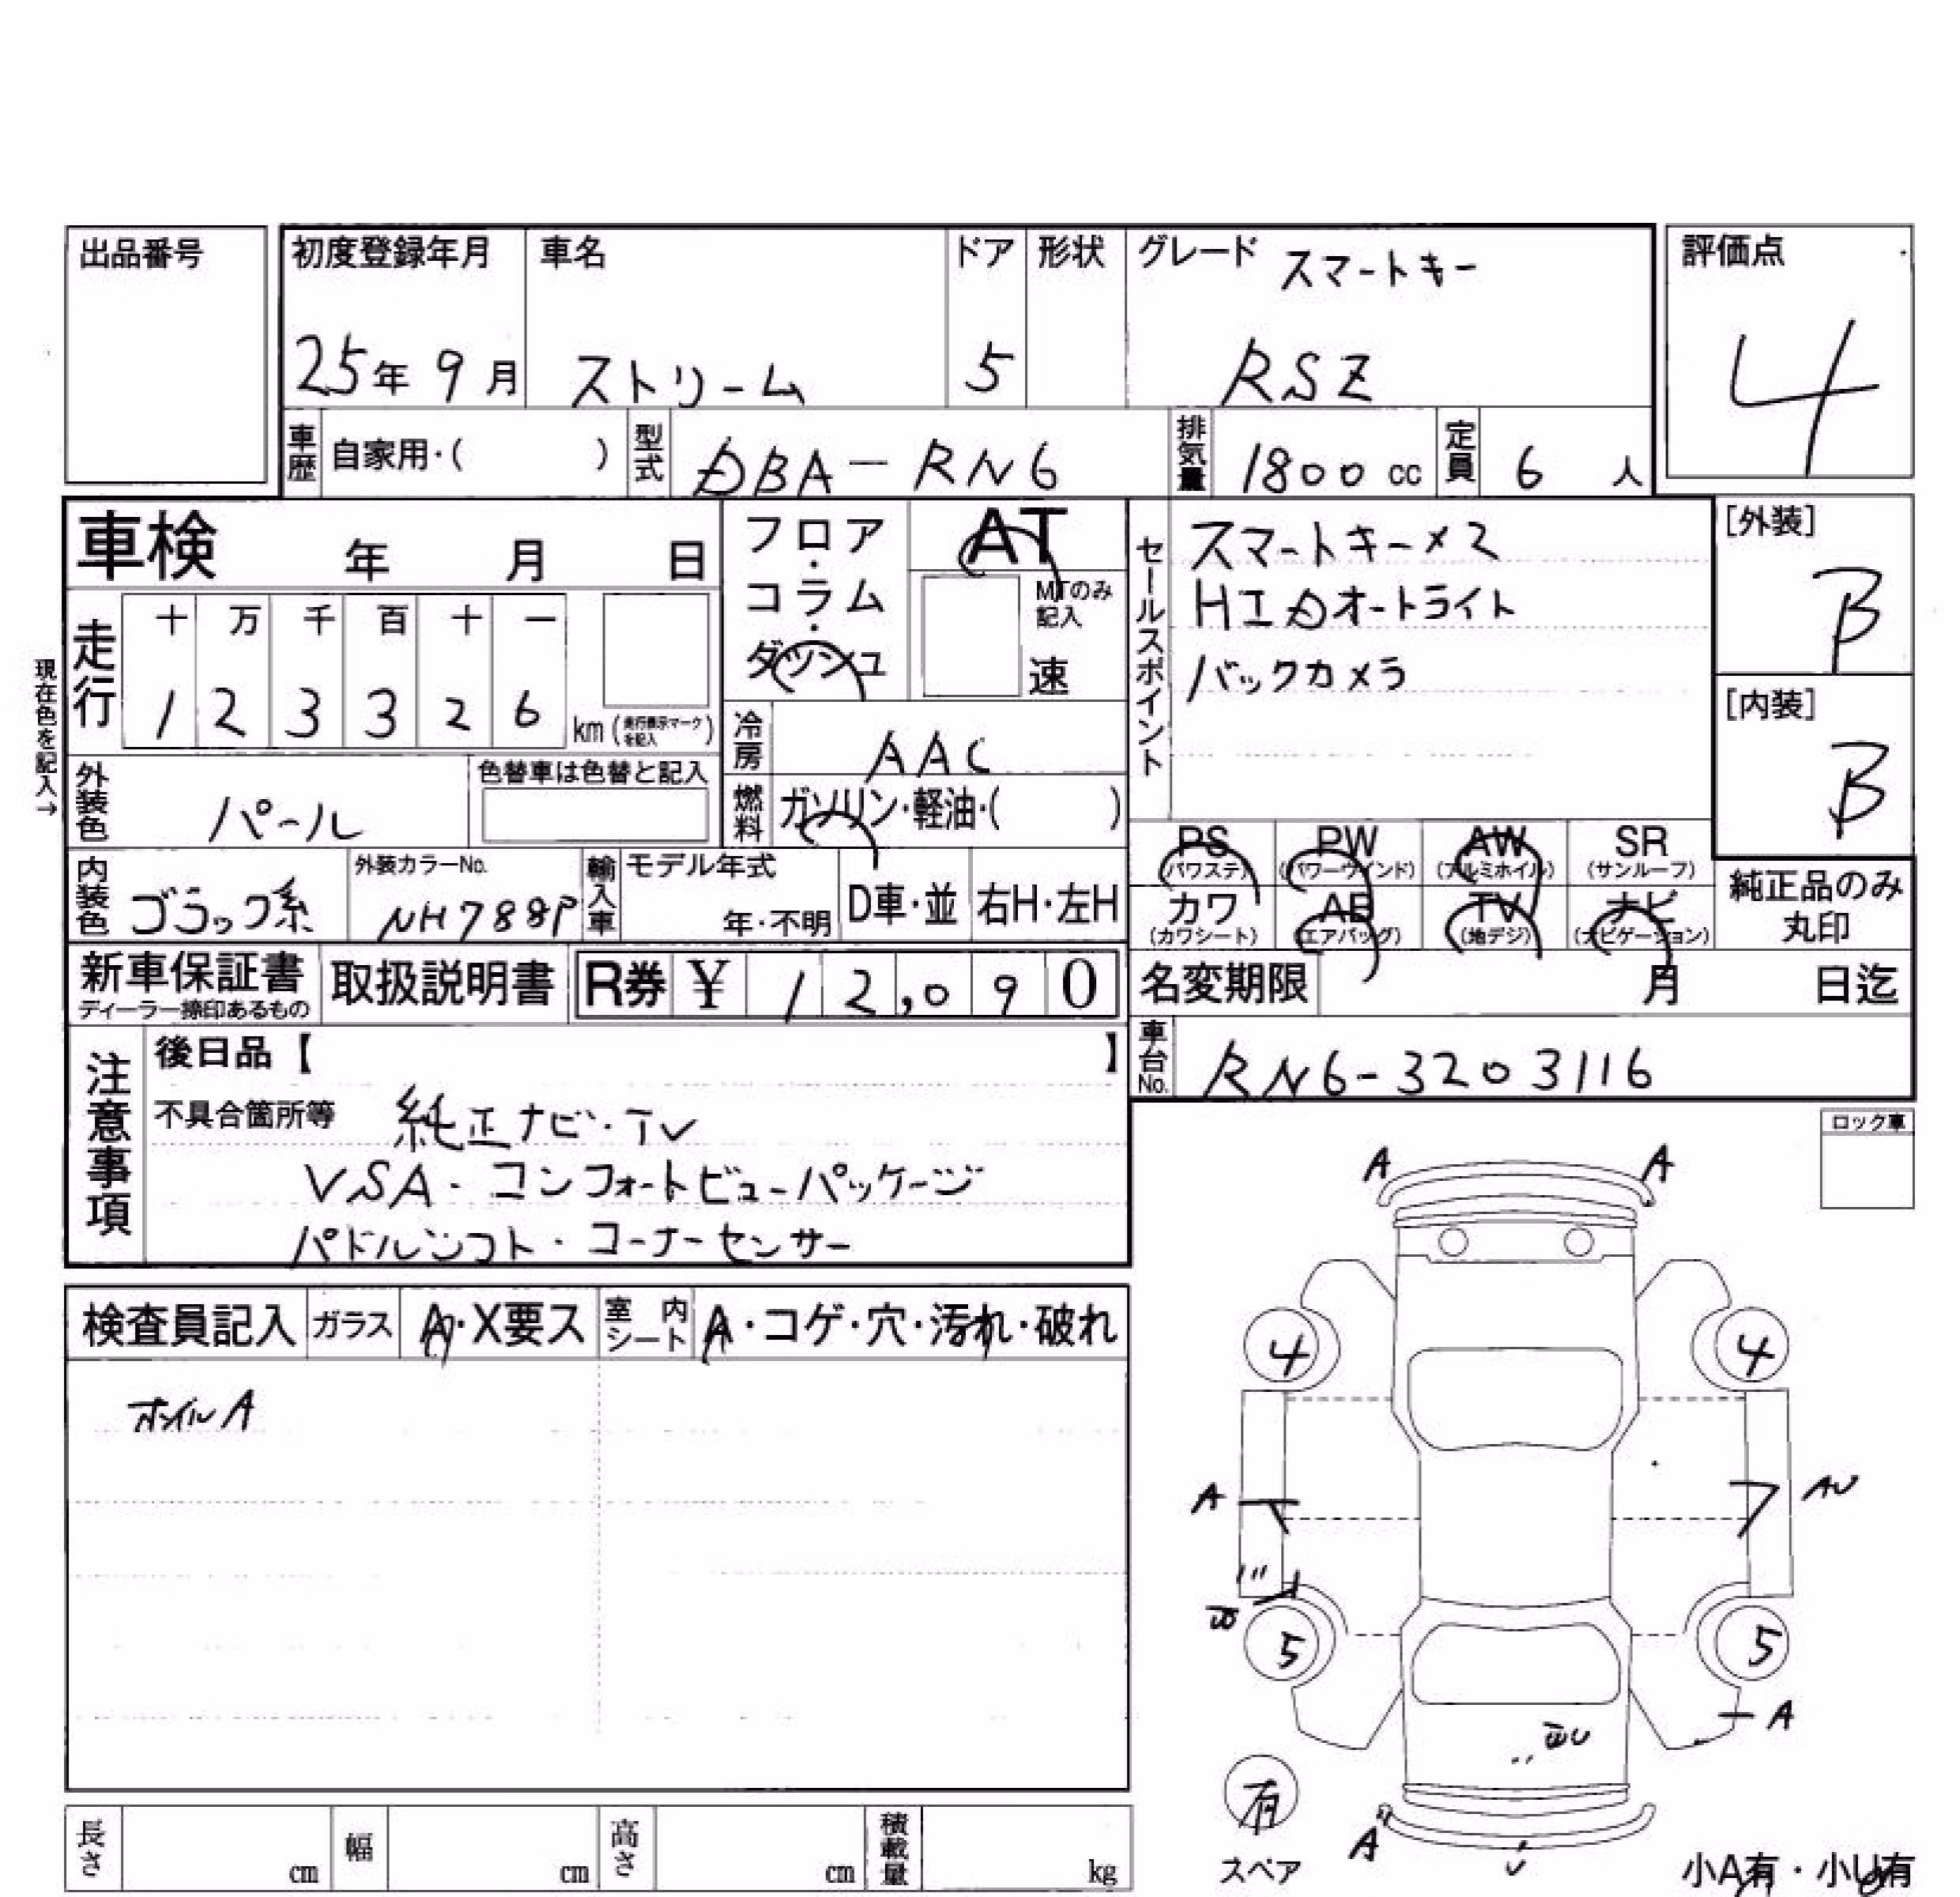 出品番号
初度登録年月 車名 ドア 形状 グレード スマートキー
評価点
25年 9月 ストリーム 5 RSZ
4
車歴 自家用・( ) 型式 DBA-RN6 排気量 1800cc 定員 6 人
車検 年 月 日
フロア・コラム・ダッシュ
AT
MTのみ記入
速
セールスポイント
スマートキー×2
HIDオートライト
バックカメラ
[外装]
B
[内装]
B
現在色を記入→
走行 十 万 千 百 十 一
1 2 3 3 2 6 km (走行表示マークを記入)
冷房 AAC
外装色 パール 色替車は色替と記入
燃料 ガソリン・軽油・( )
内装色 ブラック系 外装カラーNo. NH788P 輸入車 モデル年式 年・不明 D車・並 右H・左H
PS (パワステ) PW (パワーウインド) AW (アルミホイル) SR (サンルーフ)
カワ (カワシート) AB (エアバッグ) TV (地デジ) ナビ (ナビゲーション)
純正品のみ
丸印
新車保証書
ディーラー捺印あるもの
取扱説明書 R券 ¥ 12,090
名変期限 月 日迄
車台No. RN6-3203116
注意事項
後日品【 】
不具合箇所等 純正ナビ・TV
VSA・コンフォートビューパッケージ
パドルシフト・コーナーセンサー
ロック車
検査員記入 ガラス A・X要ス 室内シート A・コゲ・穴・汚れ・破れ
ホイルA
A A
4 4
A AU
5 5
A
有
スペア
A
小A有・小U有
長さ cm 幅 cm 高さ cm 積載量 kg